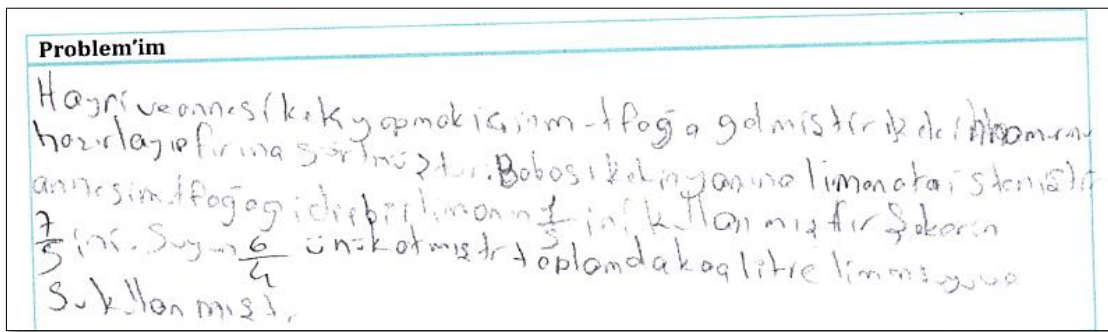 Problem'im
Hayri ve annesi kek yapmak için mutfağa gelmiştir kekin hamurunu
hazırlayıp fırına sürmüştür. Babası kekin yanına limonata istemiştir
annesi mutfağa gidip bir limonun 1/5 ini kullanmıştır Şekerin
7/5 ini. Suyun 6/4 ünü katmıştır toplamda kaç litre limon suyuve
Su kullanmıştı.